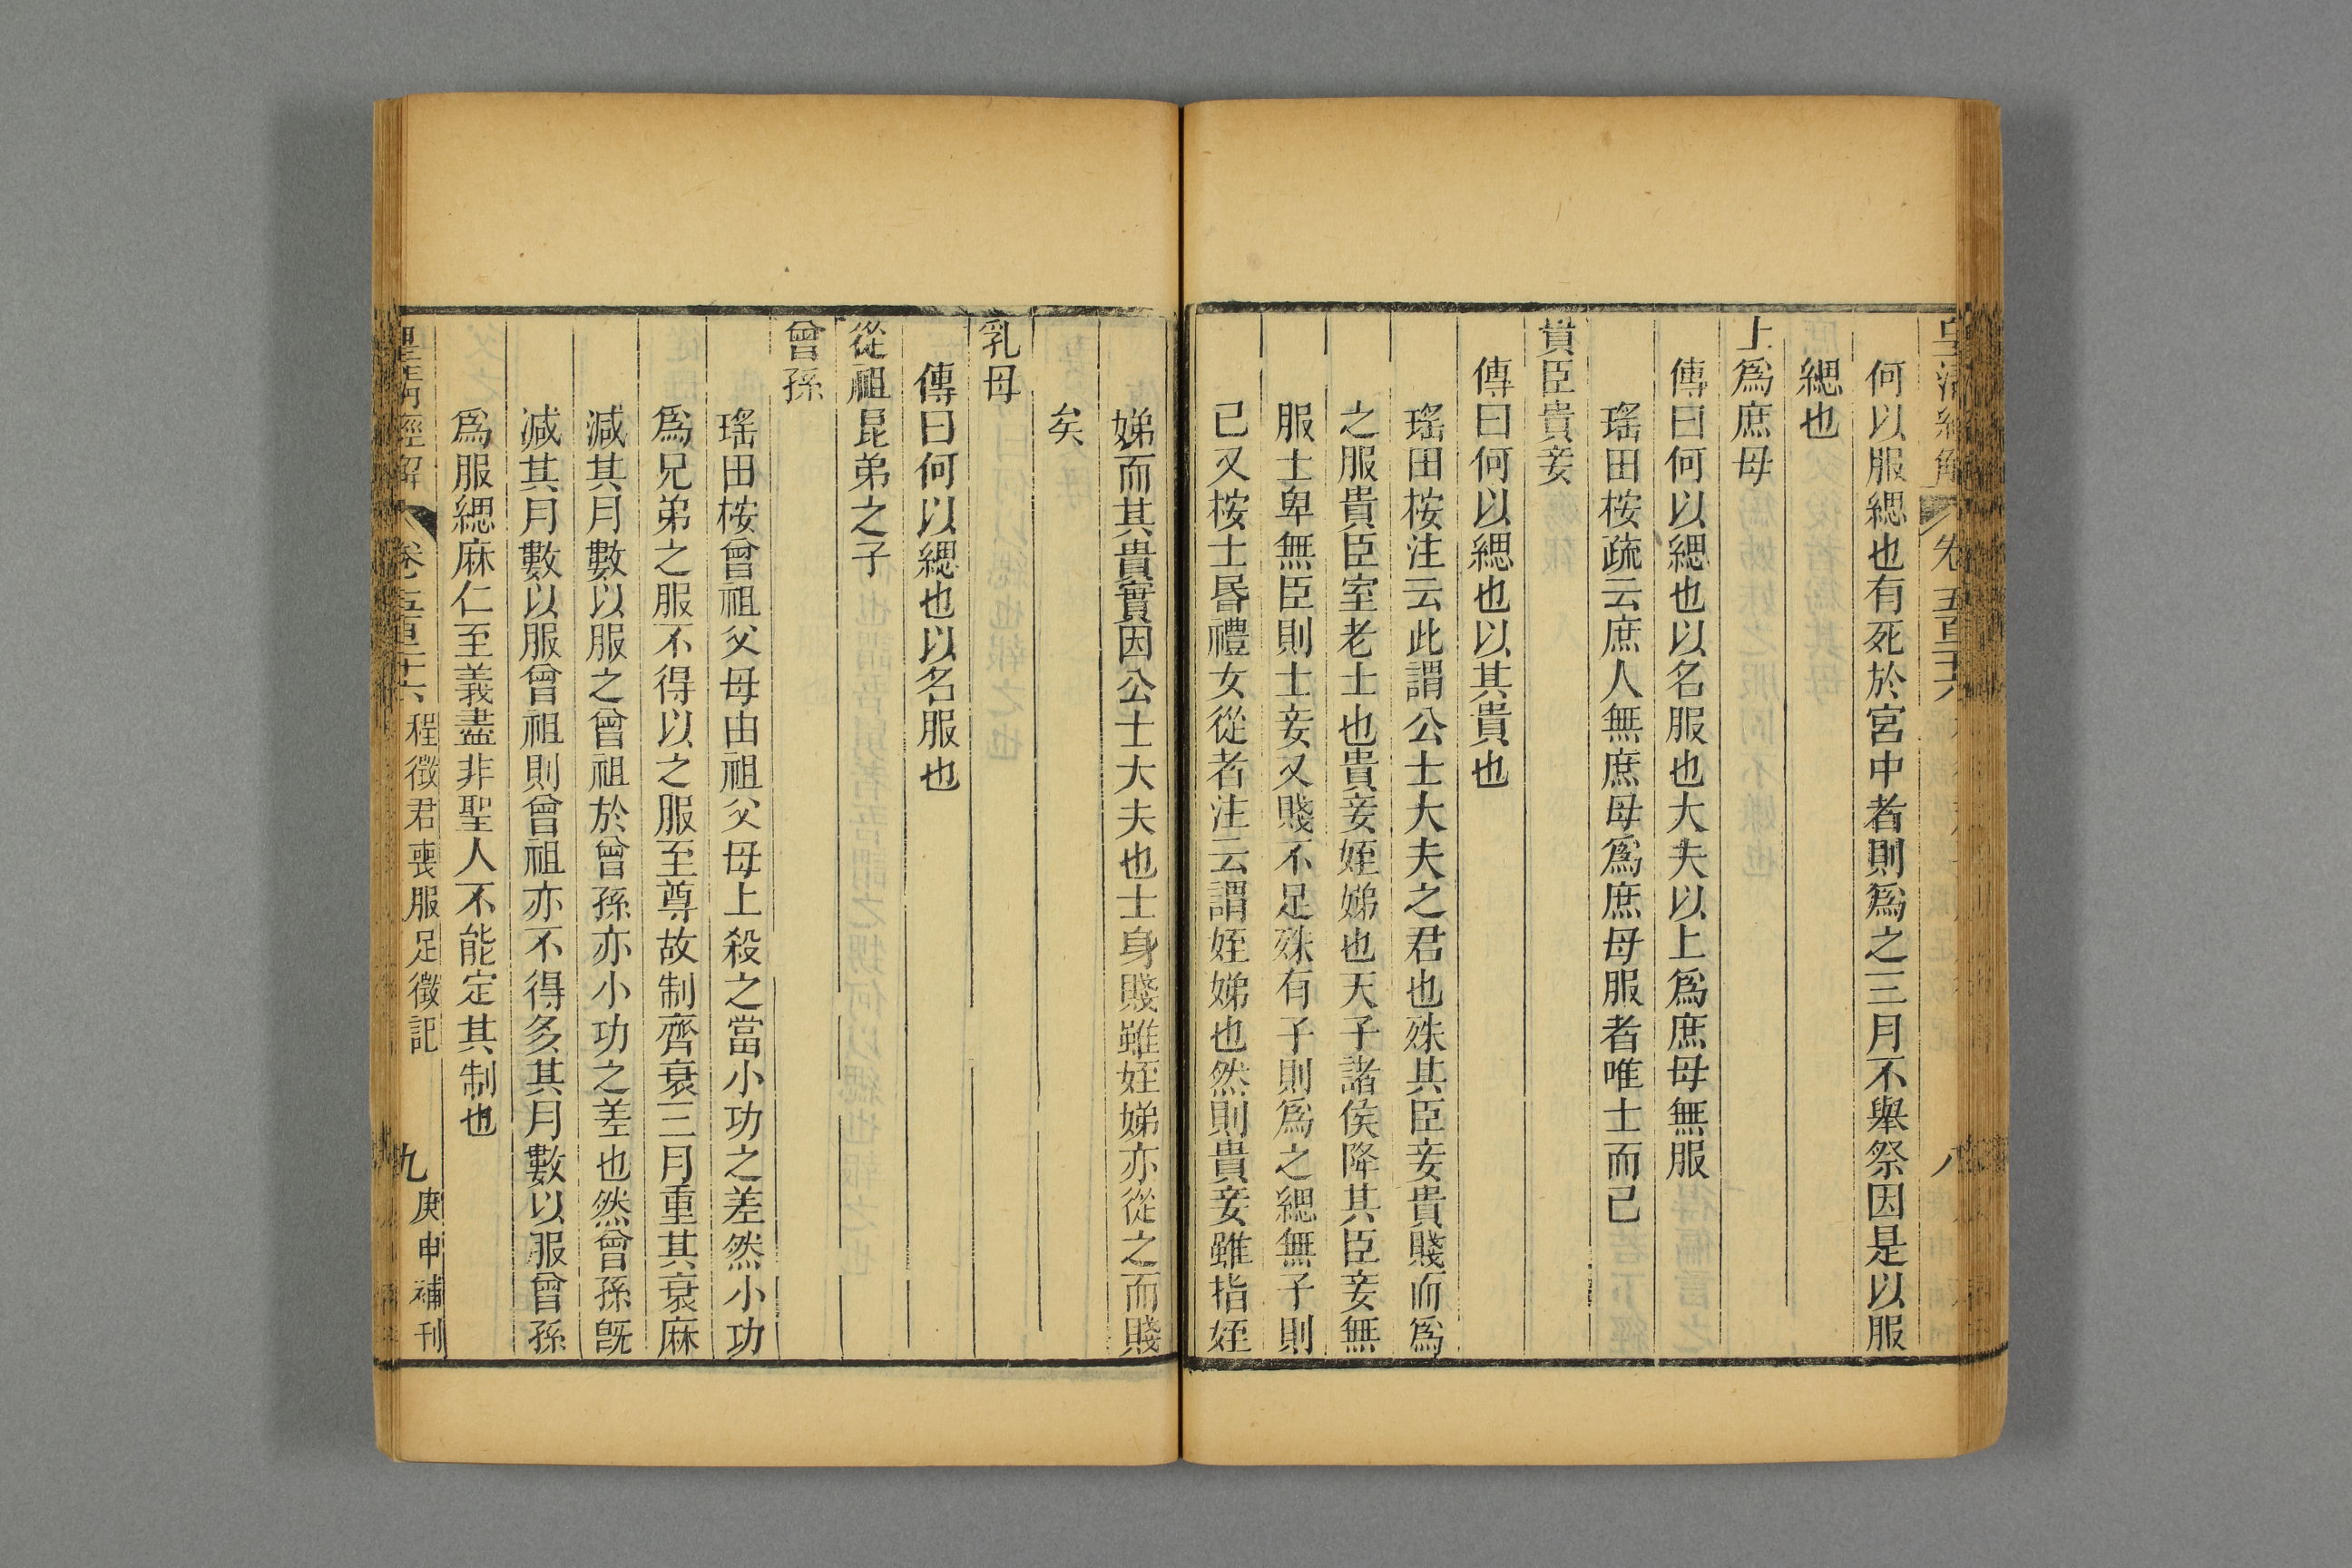 皇清經解 卷五百二十六 八
何以服緦也有死於宮中者則爲之三月不舉祭因是以服
緦也
士爲庶母
傳曰何以緦也以名服也大夫以上爲庶母無服
瑤田桉疏云庶人無庶母爲庶母服者唯士而已
貴臣貴妾
傳曰何以緦也以其貴也
瑤田桉注云此謂公士大夫之君也殊其臣妾貴賤而爲
之服貴臣室老士也貴妾姪娣也天子諸侯降其臣妾無
服士卑無臣則士妾又賤不足殊有子則爲之緦無子則
已又桉士昏禮女從者注云謂姪娣也然則貴妾雖指姪
娣而其貴實因公士大夫也士身賤雖姪娣亦從之而賤
矣
乳母
傳曰何以緦也以名服也
從祖昆弟之子
曾孫
瑤田桉曾祖父母由祖父母上殺之當小功之差然小功
爲兄弟之服不得以之服至尊故制齊衰三月重其衰麻
減其月數以服之曾祖於曾孫亦小功之差也然曾孫旣
減其月數以服曾祖則曾祖亦不得多其月數以服曾孫
爲服緦麻仁至義盡非聖人不能定其制也
皇清經解 卷五百二十六 程徵君喪服足徵記 九 庚申補刊